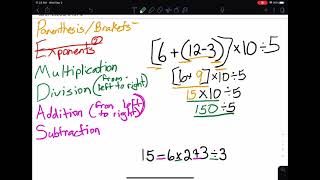 11:23 AM Wed May 5
Parenthesis/Brakets
Exponents
Multiplication
Division (from left to right)
Addition (from left to right)
Subtraction
[6+(12-3)]×10÷5
[6+9]×10÷5
15×10÷5
150÷5
15=6×2+3÷3